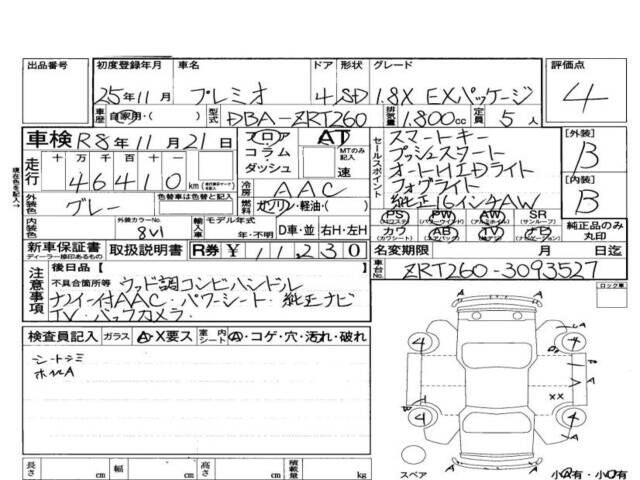 出品番号 初度登録年月 車名 ドア 形状 グレード 評価点
25年11月 プレミオ 4 SD 1.8X EXパッケージ 4
車歴 自家用・( ) 型式 DBA-ZRT260 排気量 1.800cc 定員 5人
車検 R8年11月21日 フロア コラム ダッシュ AT MTのみ記入 速
走行 十万 万 千 百 十 一
46410 km
セールスポイント
スマートキー
プッシュスタート
オートHIDライト
フォグライト
純正16インチAW
[外装] B
[内装] B
冷房 AAC
燃料 ガソリン・軽油・( )
外装色 グレー 色替車は色替と記入
内装色 外装カラーNo. 8V1
輸入車 モデル年式 年・不明 D車・並 右H・左H
PS PW AW SR
カワ AB TV ナビ
純正品のみ丸印
新車保証書 取扱説明書 R券 ¥11,230
ディーラー捺印あるもの
名変期限 月 日迄
車台No. ZRT260-3093527
現在色を記入→
注意事項
後日品[
不具合箇所等 ウッド調コンビハンドル
ナノイー付AAC・パワーシート・純正ナビ
TV・バックカメラ
ロック車
検査員記入 ガラス A・X要ス 室内 シート 内 A・コゲ・穴・汚れ・破れ
シートシミ
ホイルA
4 4
4 4
A A A A
XX
B
スペア
小A有・小U有
長さ cm 幅 cm 高さ cm 積載量 kg